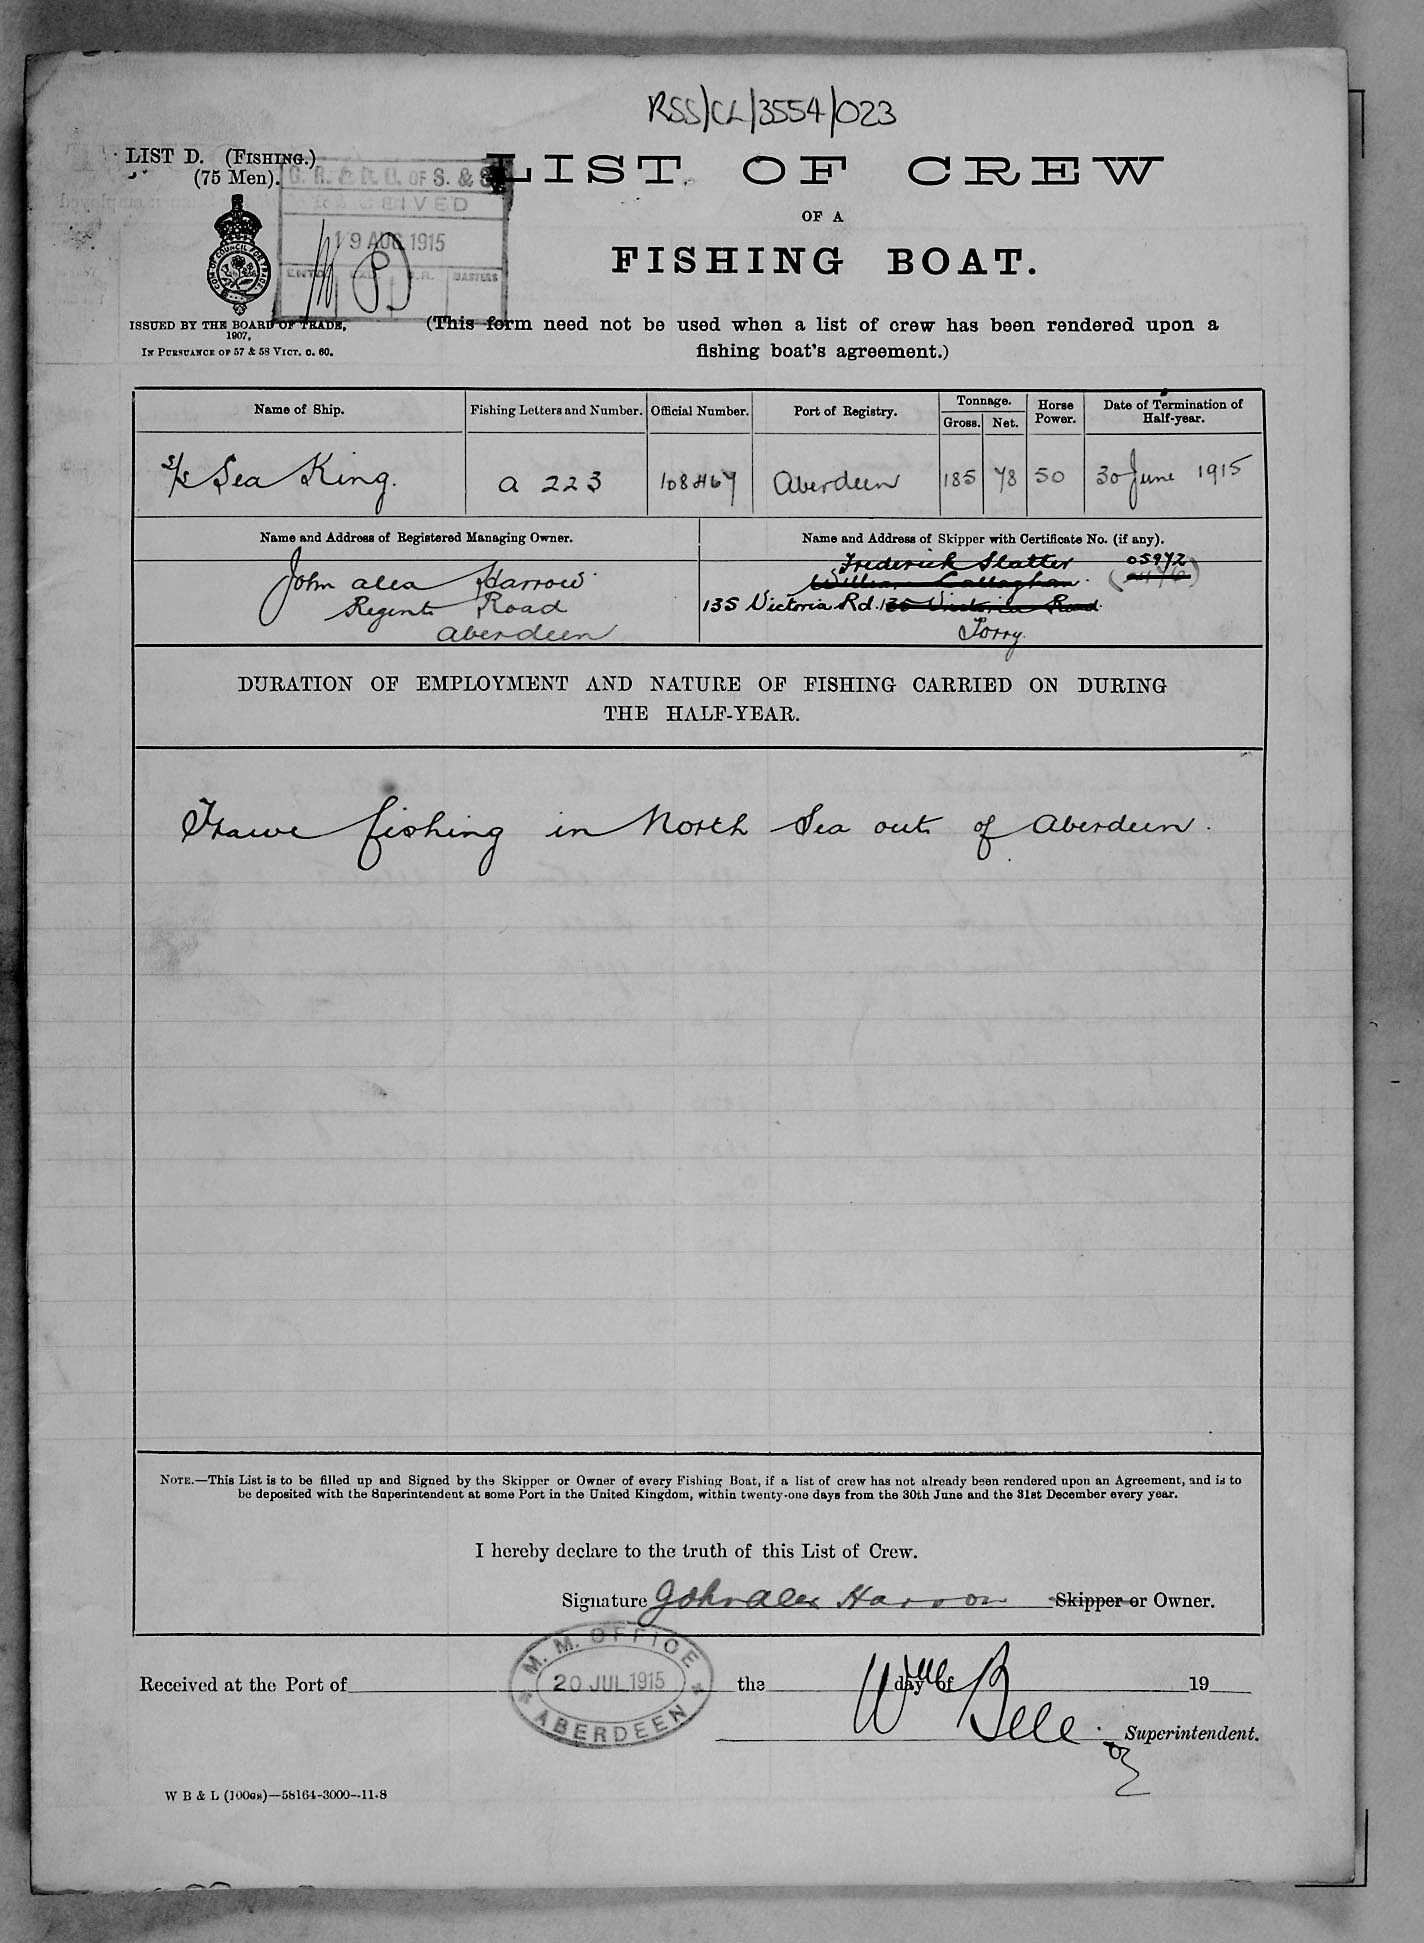 RSS/CL/3554/023
LIST D. (FISHING.)
(75 Men).
G. R. & R. O. OF S. & S.
RECEIVED
19 AUG 1915
ENTD. R. MASTERS
COM. OF COUNCIL FOR TRADE
ISSUED BY THE BOARD OF TRADE,
1907,
IN PURSUANCE OF 57 & 58 VICT. C. 60.
LIST OF CREW
OF A
FISHING BOAT.
(This form need not be used when a list of crew has been rendered upon a
fishing boat's agreement.)
Name of Ship. Fishing Letters and Number. Official Number. Port of Registry. Tonnage. Gross. Net. Horse Power. Date of Termination of Half-year.
S/S Sea King. A 223 108467 Aberdeen 185 78 50 30 June 1915
Name and Address of Registered Managing Owner. Name and Address of Skipper with Certificate No. (if any).
Frederick Slatter 05972
John Alex Harrow William Callaghan
Regent Road 135 Victoria Rd. 135 Victoria Road
Aberdeen Torry.
DURATION OF EMPLOYMENT AND NATURE OF FISHING CARRIED ON DURING
THE HALF-YEAR.
Trawl fishing in North Sea out of Aberdeen.
NOTE.—This List is to be filled up and Signed by the Skipper or Owner of every Fishing Boat, if a list of crew has not already been rendered upon an Agreement, and is to
be deposited with the Superintendent at some Port in the United Kingdom, within twenty-one days from the 30th June and the 31st December every year.
I hereby declare to the truth of this List of Crew.
Signature John Alex Harrow Skipper or Owner.
M. M. OFFICE
20 JUL 1915
ABERDEEN
Received at the Port of the day of 19
Wm Bell
Superintendent.
W B & L (100gs)—58164-3000--11-8